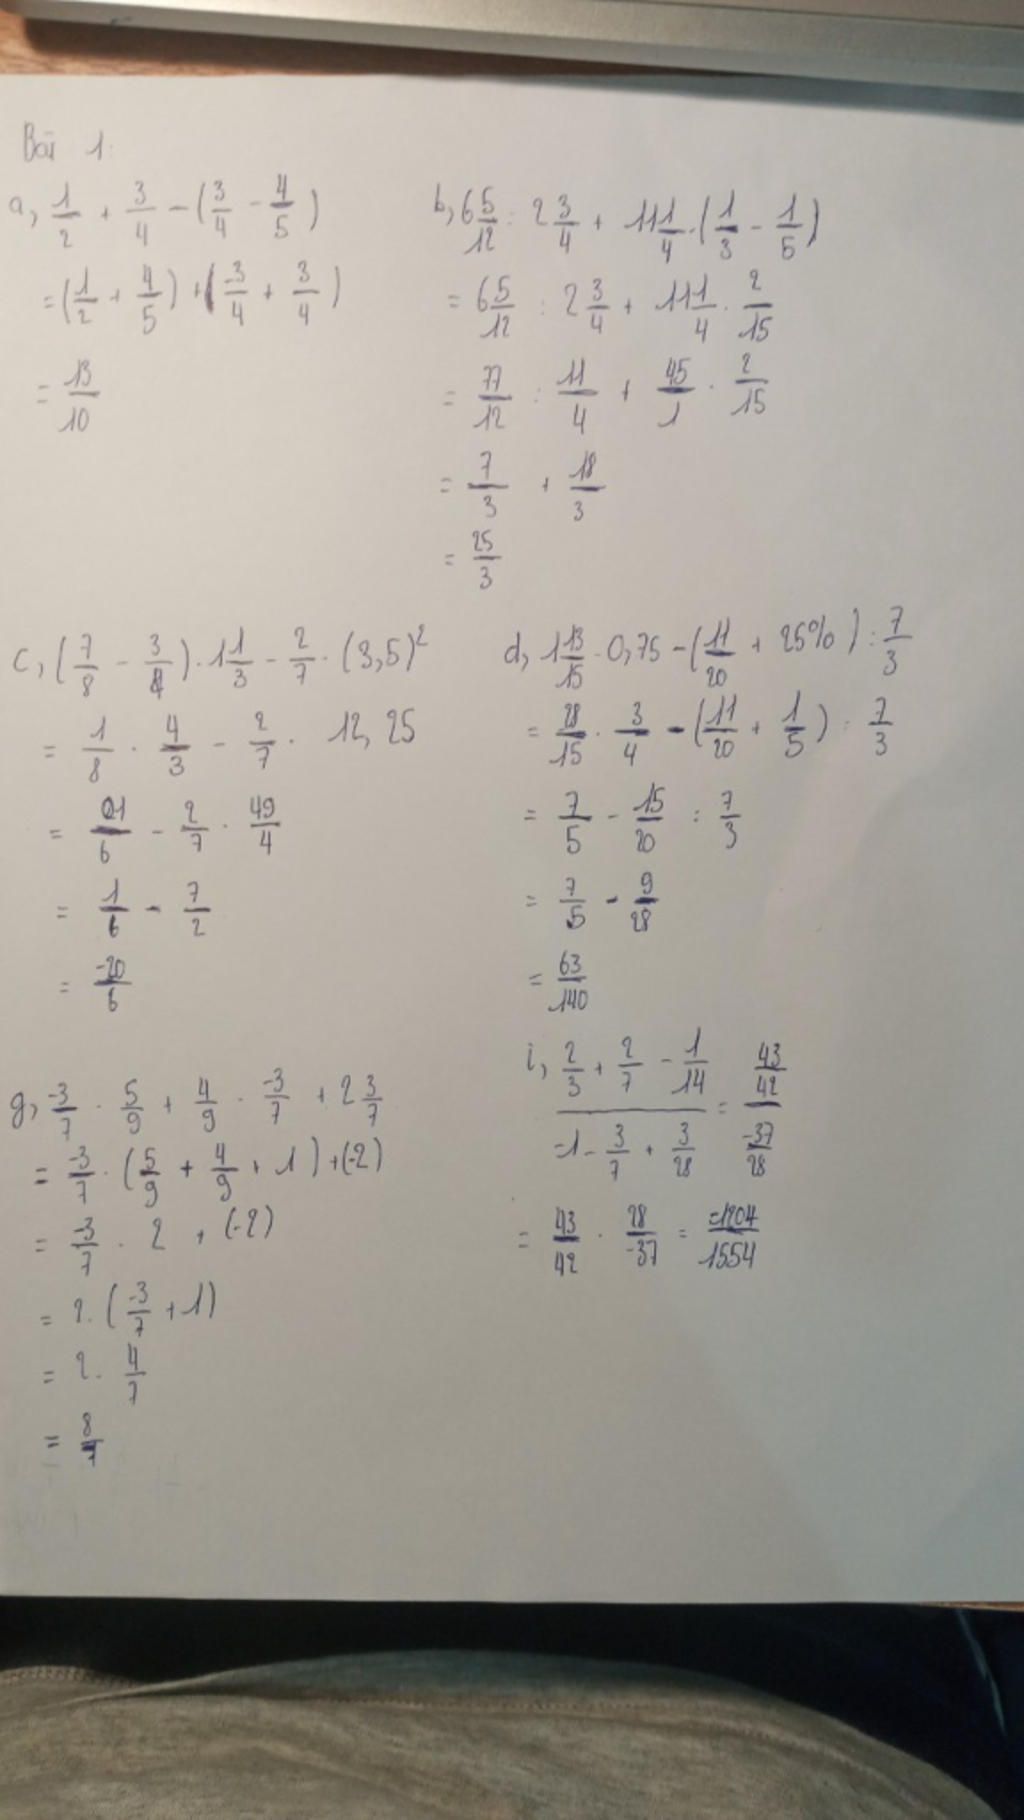 Bài 1:
a, 1/2 + 3/4 - (3/4 - 4/5)
= (1/2 + 4/5) + (-3/4 + 3/4)
= 13/10
b, 6 5/12 : 2 3/4 + 11 1/4 . (1/3 - 1/5)
= 6 5/12 : 2 3/4 + 11 1/4 . 2/15
= 77/12 : 11/4 + 45/1 . 2/15
= 7/3 + 18/3
= 25/3
c, (7/8 - 3/4) . 1 1/3 - 2/7 . (3,5)²
= 1/8 . 4/3 - 2/7 . 12,25
= 1/6 - 2/7 . 49/4
= 1/6 - 7/2
= -20/6
d, 1 13/15 . 0,75 - (11/20 + 25%) : 7/3
= 28/15 . 3/4 - (11/20 + 1/5) : 7/3
= 7/5 - 15/20 : 7/3
= 7/5 - 9/28
= 63/140
g, -3/7 . 5/9 + 4/9 . -3/7 + 2 3/7
= -3/7 . (5/9 + 4/9 + 1) + (-2)
= -3/7 . 2 + (-2)
= 2 . (-3/7 + 1)
= 2 . 4/7
= 8/7
i, (2/3 + 2/7 - 1/14) / (-1 - 3/7 + 3/28) = (43/42) / (-37/28)
= 43/42 . 28/-37 = -1204/1554